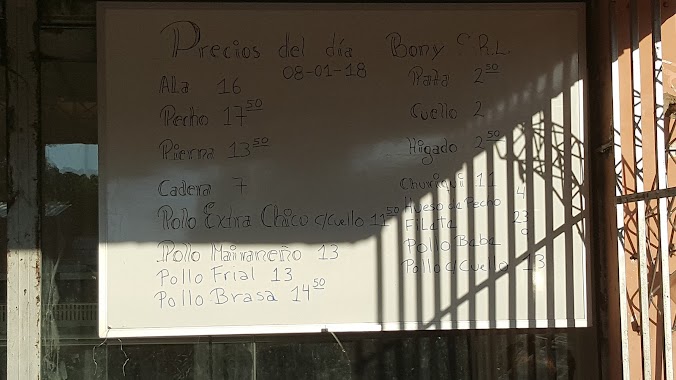 Precios del día Bony S.R.L.
08-01-18
Ala 16
Pecho 17 50
Pierna 13 50
Cadera 7
Pollo Extra Chico c/cuello 11 50
Pollo Mairaneño 13
Pollo Frial 13
Pollo Brasa 14 50
Pata 2 50
Cuello 2
Higado 2 50
Churiqui 11
Hueso de Pecho 4
Filete 23
Pollo Bebe 9
Pollo c/cuello 13